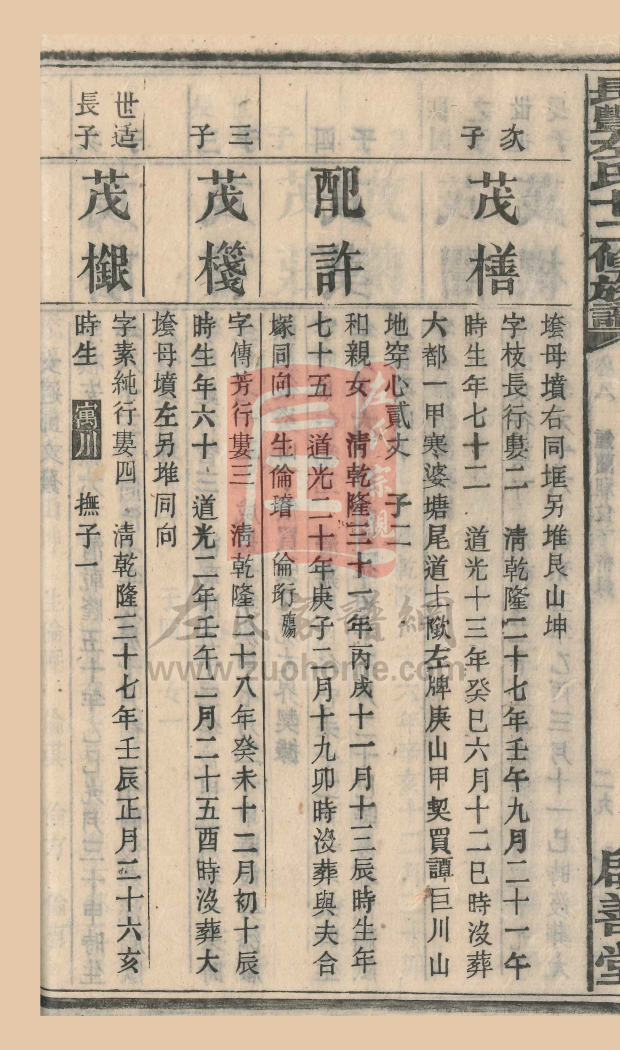 長豐左氏十二修族譜
啟善堂
塟母墳右同堆另堆艮山坤
次子
茂橏
字枝長行婁二 清乾隆二十七年壬午九月二十一午
時生年七十二 道光十三年癸巳六月十二巳時沒葬
六都一甲寒婆塘尾道士㘭左牌庚山甲契買譚巨川山
地穿心貳丈 子二
配許
和親女 清乾隆三十一年丙戌十一月十三辰時生年
七十五 道光二十年庚子二月十九卯時沒葬與夫合
塚同向 生倫 倫珩殤
三子
茂
字傳芳行婁三 清乾隆二十八年癸未十二月初十辰
時生年六十 道光二年壬午二月二十五酉時沒葬大
塟母墳左另堆同向
世适長子
茂
字素純行婁四 清乾隆三十七年壬辰正月二十六亥
時生 寓川 撫子一
左氏家譜網
www.zuohome.com